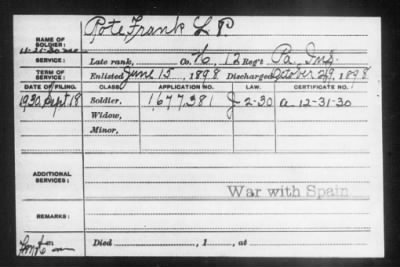 NAME OF SOLDIER: Pote, Frank L. P.
SERVICE: Late rank, Co. , 12 Reg't Pa. Inf.
TERM OF SERVICE: Enlisted June 15, 1898 Discharged October 29, 1898
DATE OF FILING. CLASS. APPLICATION NO. LAW. CERTIFICATE NO.
1930 Sept 18 Soldier, 1,677,381 J-2-30 a 12-31-30
Widow,
Minor,
ADDITIONAL SERVICES: War with Spain
REMARKS:
Died , 1 , at